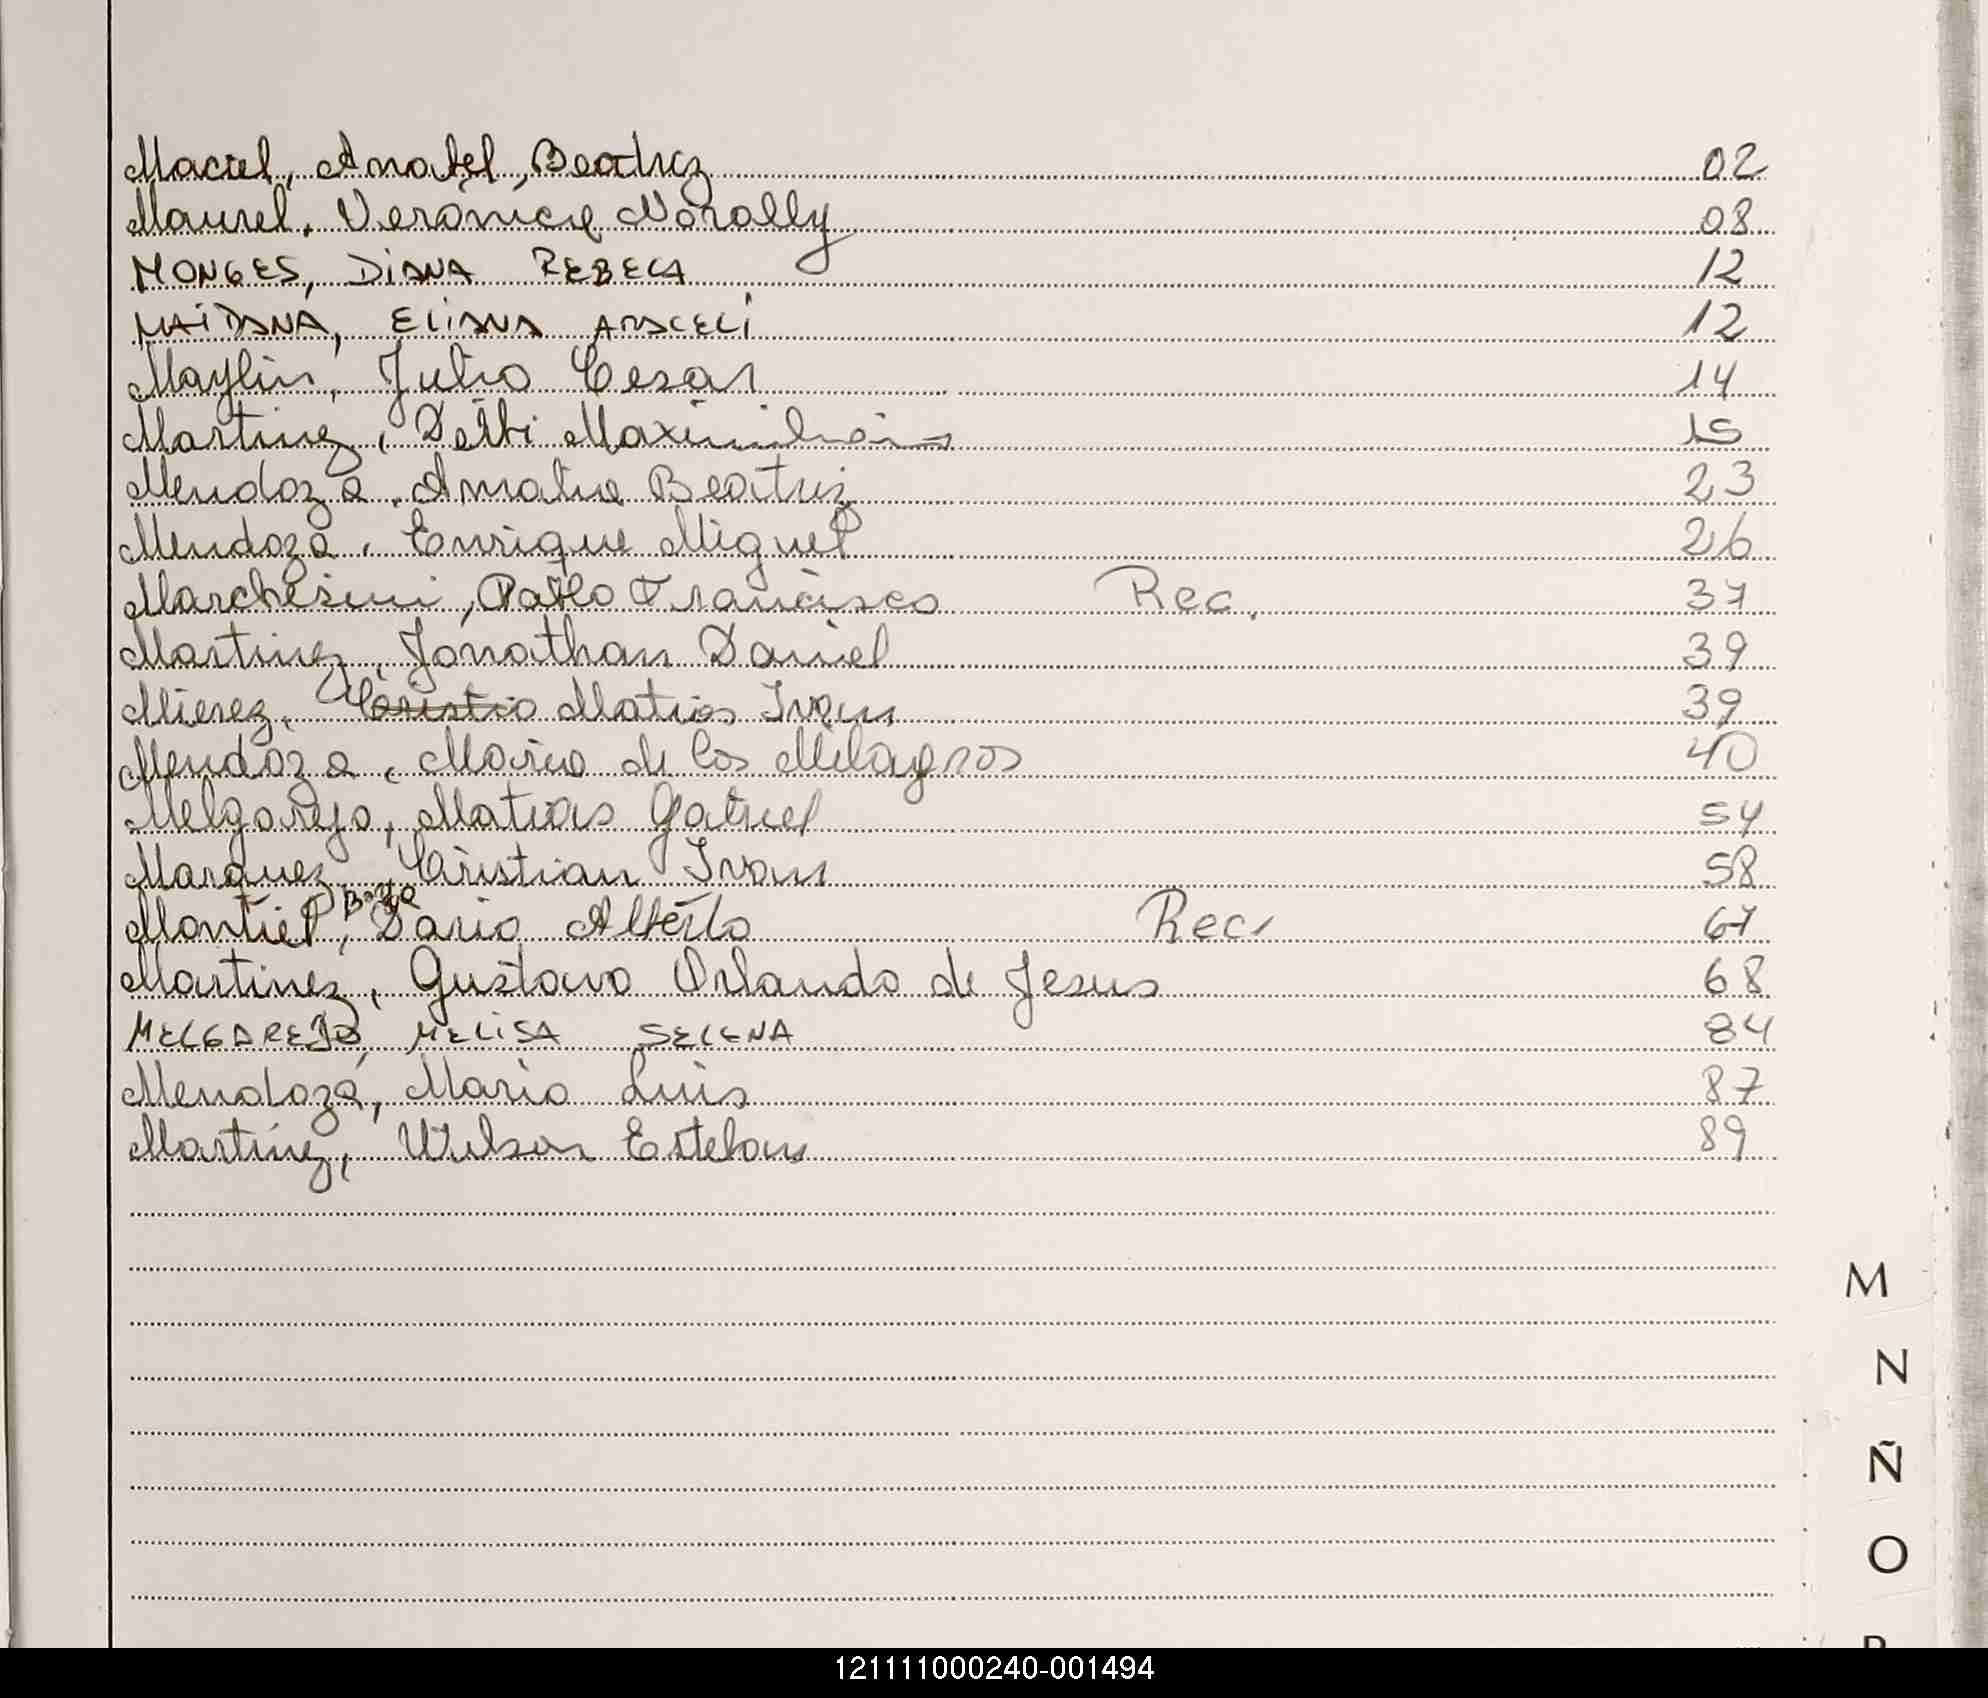 Maciel, Anabel, Beatriz 02
Maurel, Veronica Noraly 08
MONGES, DIANA REBECA 12
MAIDANA, ELIANA ARACELI 12
Maylin, Julio Cesar 14
Martinez, Delbi Maximiliano 15
Mendoza, Amalia Beatriz 23
Mendoza, Enrique Miguel 26
Marchesini, Pablo Francisco Rec. 37
Martinez, Jonathan Daniel 39
Mierez, Matias Ivan 39
Mendoza, Maria de los Milagros 40
Melgarejo, Matias Gabriel 54
Marquez Cristian Ivan 58
Montiel, Dario Alberto Rec. 67
Martinez, Gustavo Orlando de Jesus 68
MELGAREJO, MELISA SELENA 84
Mendoza, Mario Luis 87
Martinez, Wilson Esteban 89
M
N
Ñ
O
121111000240-001494